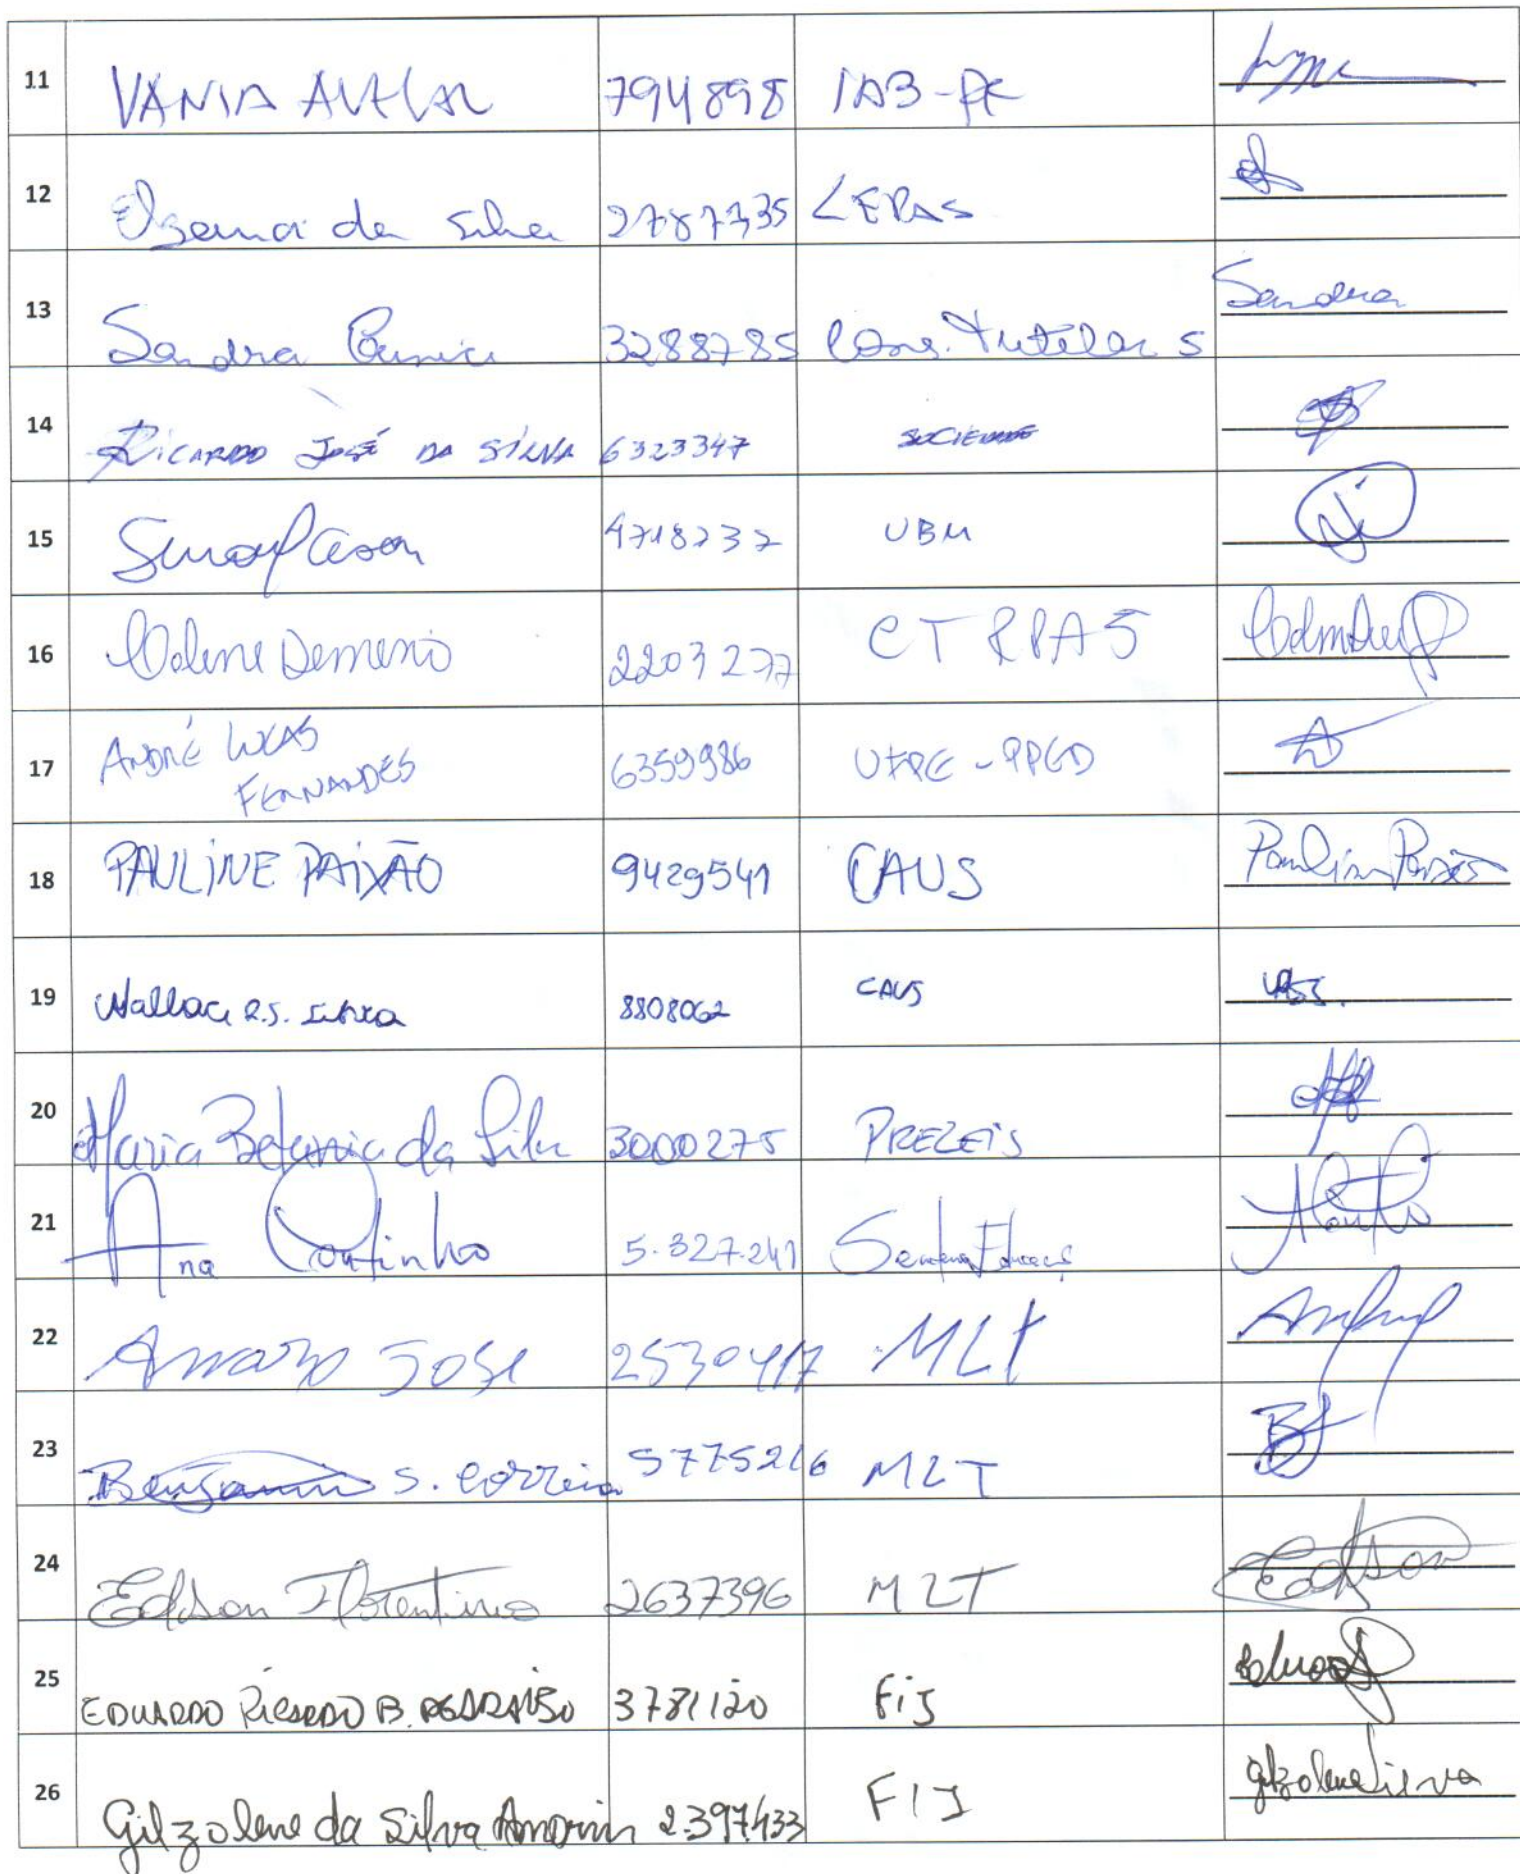 11 VANIA AVELAR 794898 IAB-PE
12 da Silva 2787335
13 Sandra 3288785 Cons. Tutelar 5 Sandra
14 RICARDO JOSÉ DA SILVA 6323347 SOCIEDADE
15 4718237 UBM
16 2203277 CT RPA5
17 ANDRÉ LUCAS
FERNANDES 6359986 UFPE - PPGD
18 PAULINE PAIXÃO 9429541 CAUS Pauline Paixão
19 Wallace R.S. 8808062 CAUS
20 Maria Betania da Silva 3000275 PREZEIS
21 Ana Coutinho 5.327.241
22 Amaro José 2530417 MLT
23 Benjamin S. Correia 5775216 MLT
24 Edson Florentino 2637396 MLT Edson
25 EDUARDO RICARDO B. 3781120 FIJ
26 Gilzolene da Silva Amorim 2.397.433 FIJ gilzolene Silva